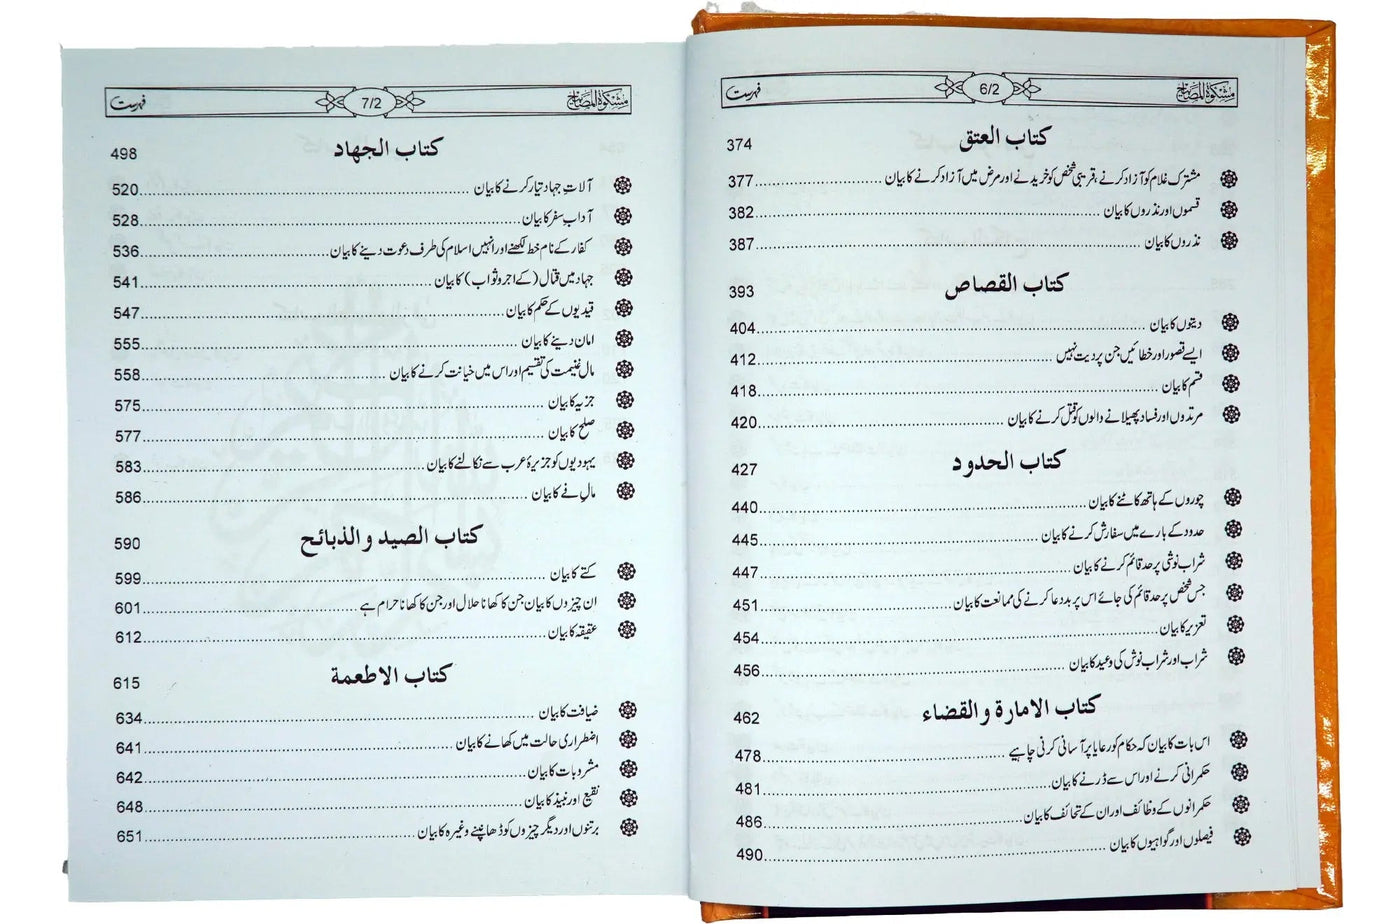 مشکوٰۃ المصابیح 6/2 فہرست
کتاب العتق 374
مشترک غلام کو آزاد کرنے، قریبی شخص کو خریدنے اور مرض میں آزاد کرنے کا بیان 377
قسموں اور نذروں کا بیان 382
نذروں کا بیان 387
کتاب القصاص 393
دیتوں کا بیان 404
ایسے قصور اور خطائیں جن پر دیت نہیں 412
قسم کا بیان 418
مرتدوں اور فساد پھیلانے والوں کو قتل کرنے کا بیان 420
کتاب الحدود 427
چوروں کے ہاتھ کاٹنے کا بیان 440
حدود کے بارے میں سفارش کرنے کا بیان 445
شراب نوشی پر حد قائم کرنے کا بیان 447
جس شخص پر حد قائم کی جائے اس پر بددعا کرنے کی ممانعت کا بیان 451
تعزیر کا بیان 454
شراب اور شراب نوش کی وعید کا بیان 456
کتاب الامارۃ والقضاء 462
اس بات کا بیان کہ حکام کو رعایا پر آسانی کرنی چاہیے 478
حکمرانی کرنے اور اس سے ڈرنے کا بیان 481
حکمرانوں کے وظائف اور ان کے تحائف کا بیان 486
فیصلوں اور گواہیوں کا بیان 490
مشکوٰۃ المصابیح 7/2 فہرست
کتاب الجهاد 498
آلاتِ جہاد تیار کرنے کا بیان 520
آدابِ سفر کا بیان 528
کفار کے نام خط لکھنے اور انہیں اسلام کی طرف دعوت دینے کا بیان 536
جہاد میں قتال (کے اجر و ثواب) کا بیان 541
قیدیوں کے حکم کا بیان 547
امان دینے کا بیان 555
مال غنیمت کی تقسیم اور اس میں خیانت کرنے کا بیان 558
جزیہ کا بیان 575
صلح کا بیان 577
یہودیوں کو جزیرۂ عرب سے نکالنے کا بیان 583
مالِ فے کا بیان 586
کتاب الصید والذبائح 590
کتے کا بیان 599
ان چیزوں کا بیان جن کا کھانا حلال اور جن کا کھانا حرام ہے 601
عقیقہ کا بیان 612
کتاب الاطعمة 615
ضیافت کا بیان 634
اضطراری حالت میں کھانے کا بیان 641
مشروبات کا بیان 642
نقیع اور نبیذ کا بیان 648
برتنوں اور دیگر چیزوں کو ڈھانپنے وغیرہ کا بیان 651